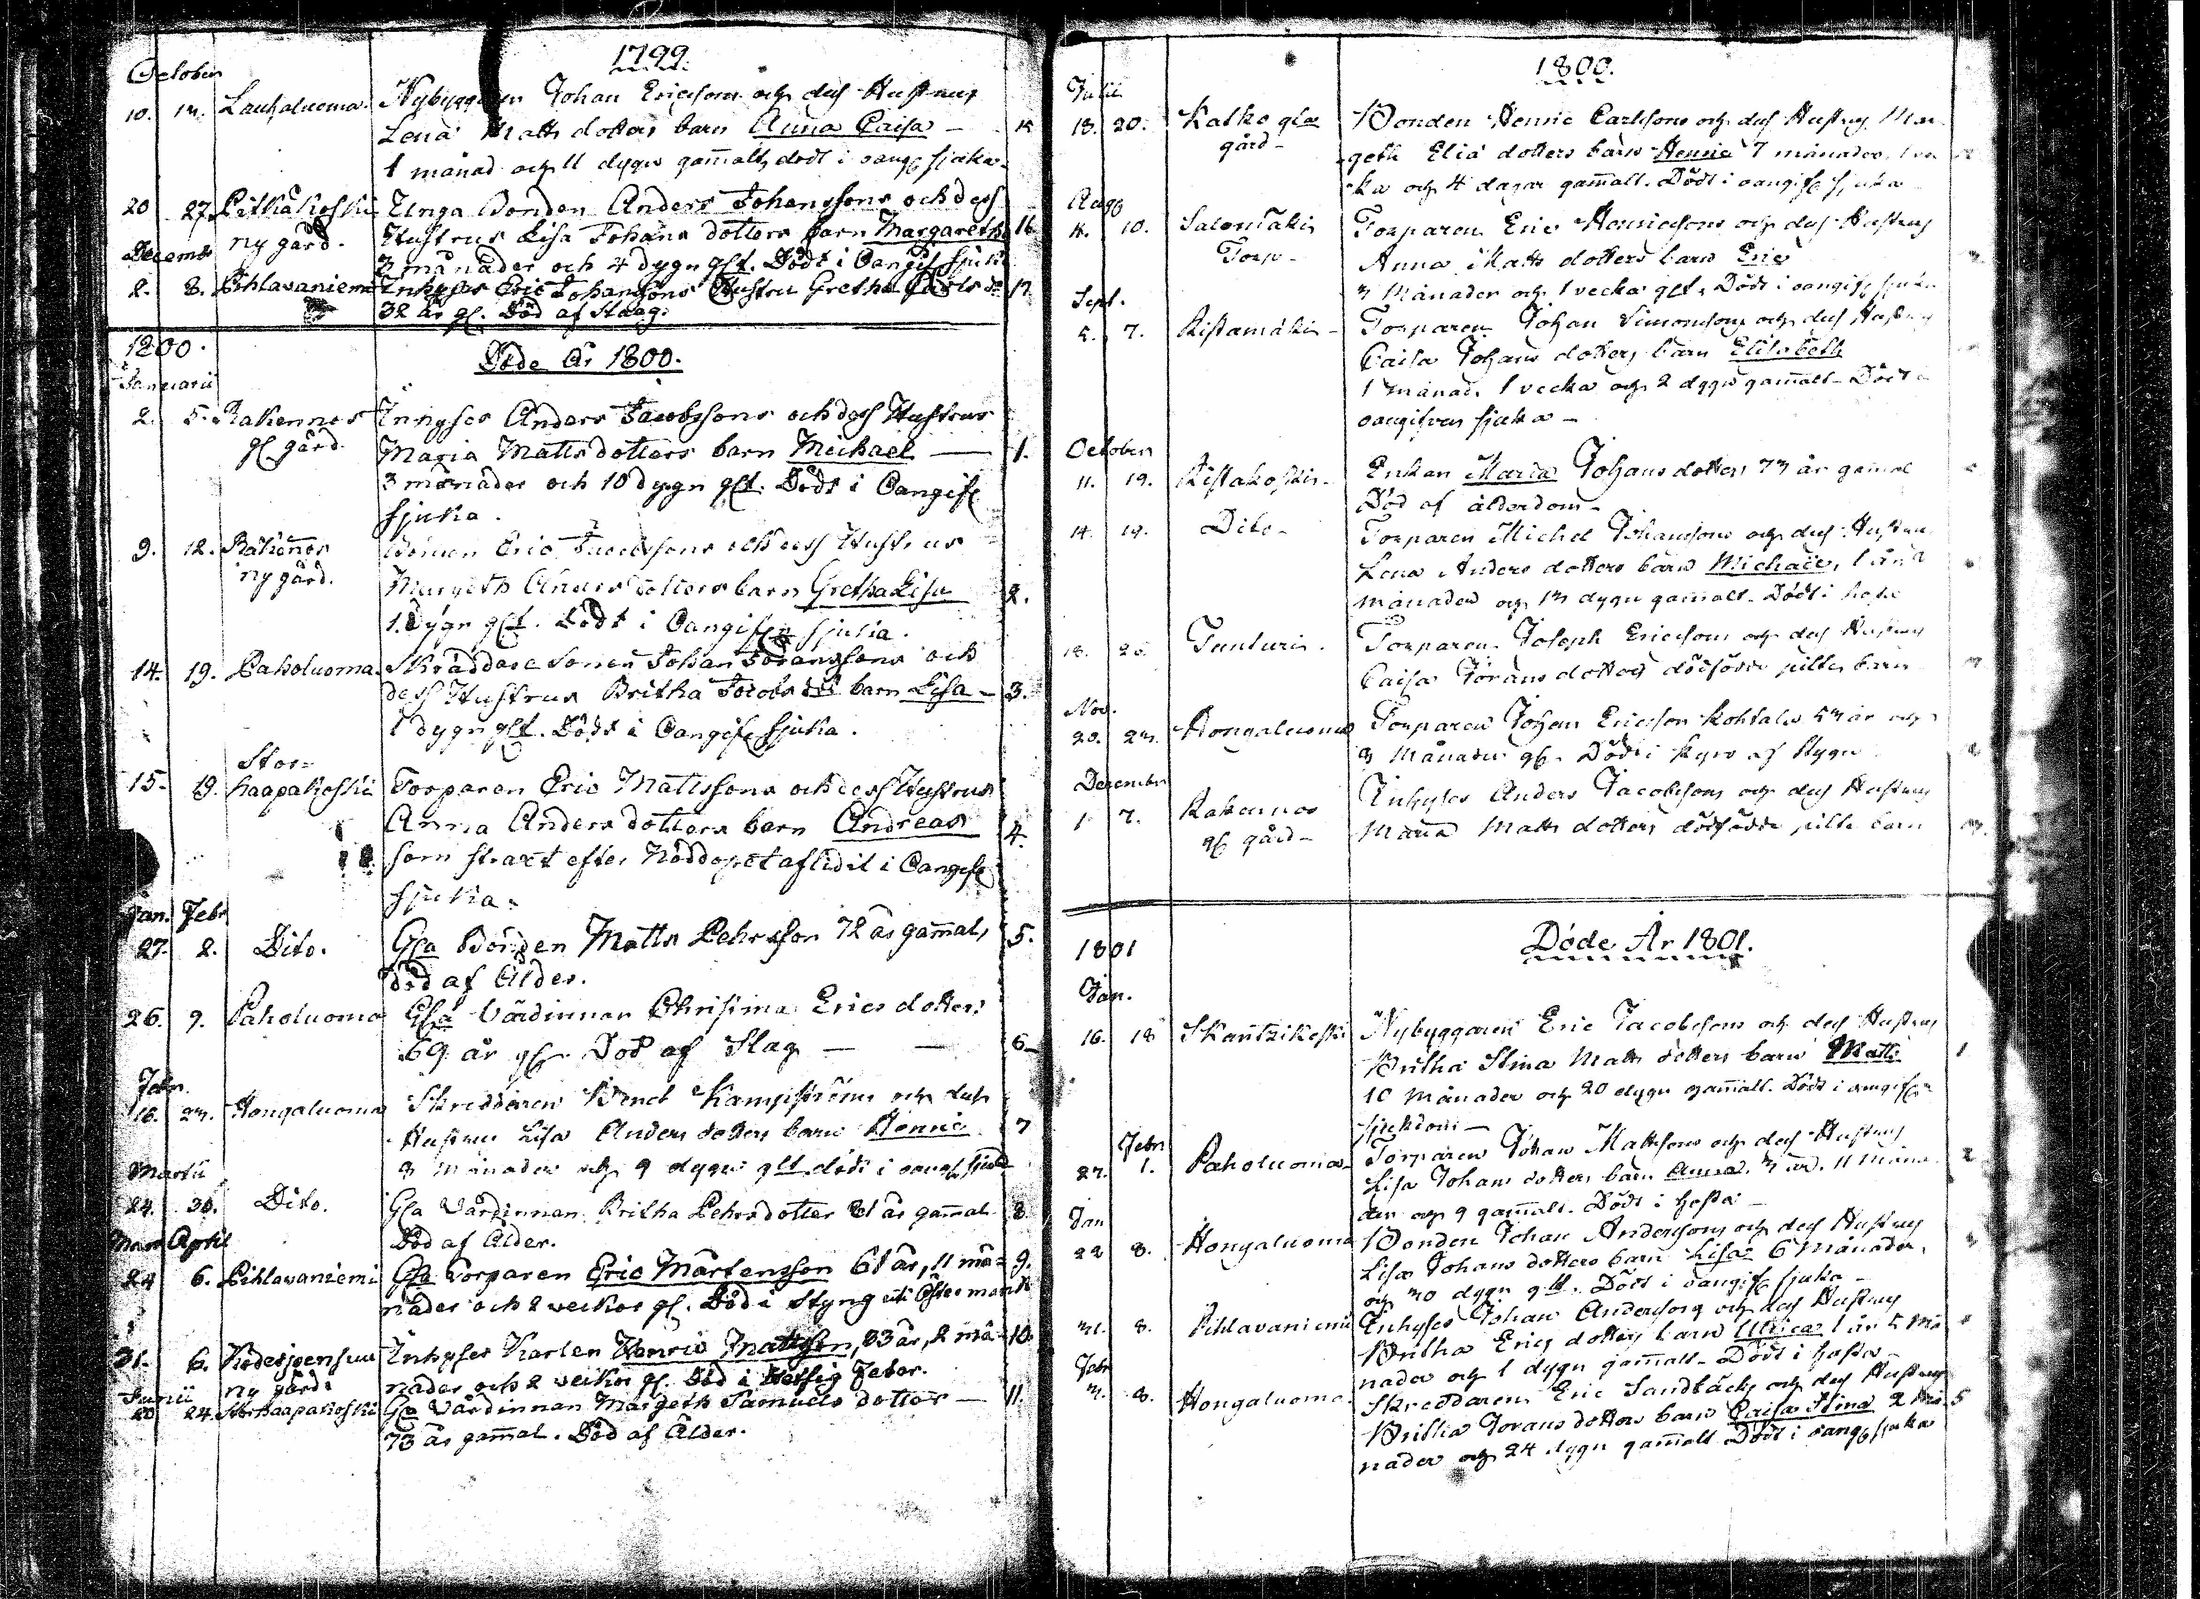 1799.
October
10. 13. Lauhaluoma. Nybyggaren Johan Ericssons och dess Hustrus
Lena Matts dotters barn Anna Caisa — 15
1 månad och 11 dygn gamalt, dödt i oangif. sjuka.
20 27. Pitkäkoski Unga Bonden Anders Johanssons och dess
ny gård. Hustrus Lisa Johans dotters barn Margareta 16
December 3 månader och 4 dygn glt. Dödt i Oangif. sjuk
2. 8. Pihlavaniemi Inhyses Eric Johanssons Hustru Gretha 17
32 år gl. Död af Slag.
1800.
Döde År 1800.
Januarii
2. 5. Rakennos Inhyses Anders Jacobssons och dess Hustrus
gl. gård. Maria Matts dotters barn Michael — 1.
3 månader och 10 dygn glt. Dödt i Oangif.
sjuka.
9. 12. Rakennos Bonden Eric Jacobssons och dess Hustrus
ny gård. Margeth Anders dotters barn Gretha Lisa 2.
1. Dygn glt. Dödt i Oangifen sjuka.
14. 19. Paholuoma. Skräddare Sonen Johan Joranssons och
dess Hustrus Britha Jacobs dr barn Lisa — 3.
1 dygn glt. Dödt i Oangif. sjuka.
Stor-
15. 19. haapakoski Torparen Eric Mattssons och dess Hustrus
Anna Anders dotters barn Andreas 4.
som straxt efter Nöddopet aflidit i Oangif.
sjuka.
Jan. Febr.
27. 2. Dito. Gla Bonden Matts Pehrsson 72 år gamal, 5.
död af Ålder.
26. 9. Paholuoma Gla Värdinnan Christina Erics dotter
69 år gl. Död af Slag — — 6
Febr.
16. 23. Hongaluoma Skreddaren Bengt Kampströms och dess
Hustrus Lisa Anders dotters barn Henric 7
3 månader och 9 dygn glt dödt i oangif. sjuka
Martii
24. 30. Dito. Gla Värdinnan Britha Pehrsdotter 81 år gamal 8.
Död af Ålder.
Mars April
24 6. Pihlavaniemi Gla Torparen Eric Mårtensson 61 år, 11 må- 9.
nader och 2 veckor gl. Död i Styng uti Östermark
31. 6. Kodesjoensuu Inhyses Karlen Henric Mattsson, 33 år, 2 må- 10.
ny gård. nader och 2 veckor gl. Död i Hetsig Feber.
Junii
20 24. Storhaapakoski Gla Värdinnan Margeth Samuels dotter — 11.
73 år gamal. Död af Ålder.
1800.
Julii
18. 20. Katko gla Bonden Henric Carlssons och dess Hustrus Mar-
gård — geth Elia dotters barn Henric 7 månader, 1 vec-
ka och 4 dagar gamalt. Dödt i oangif. sjuka
Aug
10. Salomäki Torparen Eric Henricssons och dess Hustrus
Torp — Anna Matts dotters barn Eric
3 Månader och 1 vecka glt. Dödt i oangif. sjuka
Sept.
5. 7. Ristamäki — Torparen Johan Simonssons och dess Hustrus
Caisa Johans dotters barn Elisabeth
1 månad, 1 vecka och 2 dygn gamalt — Dödt i
oangifven sjuka —
October
11. 19. Ristakoski — Enkan Maria Johans dotter 73 år gamal
Död af ålderdom —
14. 19. Dito — Torparen Michel Johanssons och dess Hustrus
Lena Anders dotters barn Michael, 1 år
månader och 13 dygn gamalt. Dödt i hosta
18. 25. Tunturi. Torparen Joseph Ericssons och dess Hustrus
Caisa Jörans dotters dödfödde pilte barn
Nov.
20. 23. Hongaluoma Torparen Johan Ericsson Kohtala 53 år och
3 Månader gl. Död i Kyro af Stygn
December
1 7. Rakennos Inhyses Anders Jacobssons och dess Hustrus
gl gård — Maria Matts dotters dödfödde pilte barn
1801
Döde År 1801.
Jan.
16. 18 Skantzikoski Nybyggaren Eric Jacobssons och dess Hustrus
Britha Stina Matts dotters barn Matts 1
10 Månader och 20 dygn gamalt. Dödt i oangifven
sjukdom —
Febr
27. 1. Paholuoma Torparen Johan Mattssons och dess Hustrus
Lisa Johans dotters barn Anna. 3 år. 11 måna- 2
der och 9 gamalt. Dödt i hosta —
Jan
22 8. Hongaluoma Bonden Johan Anderssons och dess Hustrus
Lisa Johans dotters barn Lisa 6 månader,
och 30 dygn glt. Dödt i oangif. sjuka —
31. 8. Pihlavaniemi Inhyses Johan Anderssons och dess Hustrus
Britha Erics dotters barn Ulrica 1 år 5 må-
nader och 1 dygn gamalt — Dödt i hosta —
Febr
3. 8. Hongaluoma. Skreddaren Eric Sandbäcks och dess Hustrus
Britha Jorans dotters barn Caisa Stina 2 må- 5
nader och 24 dygn gamalt Dödt i oangif. sjuka